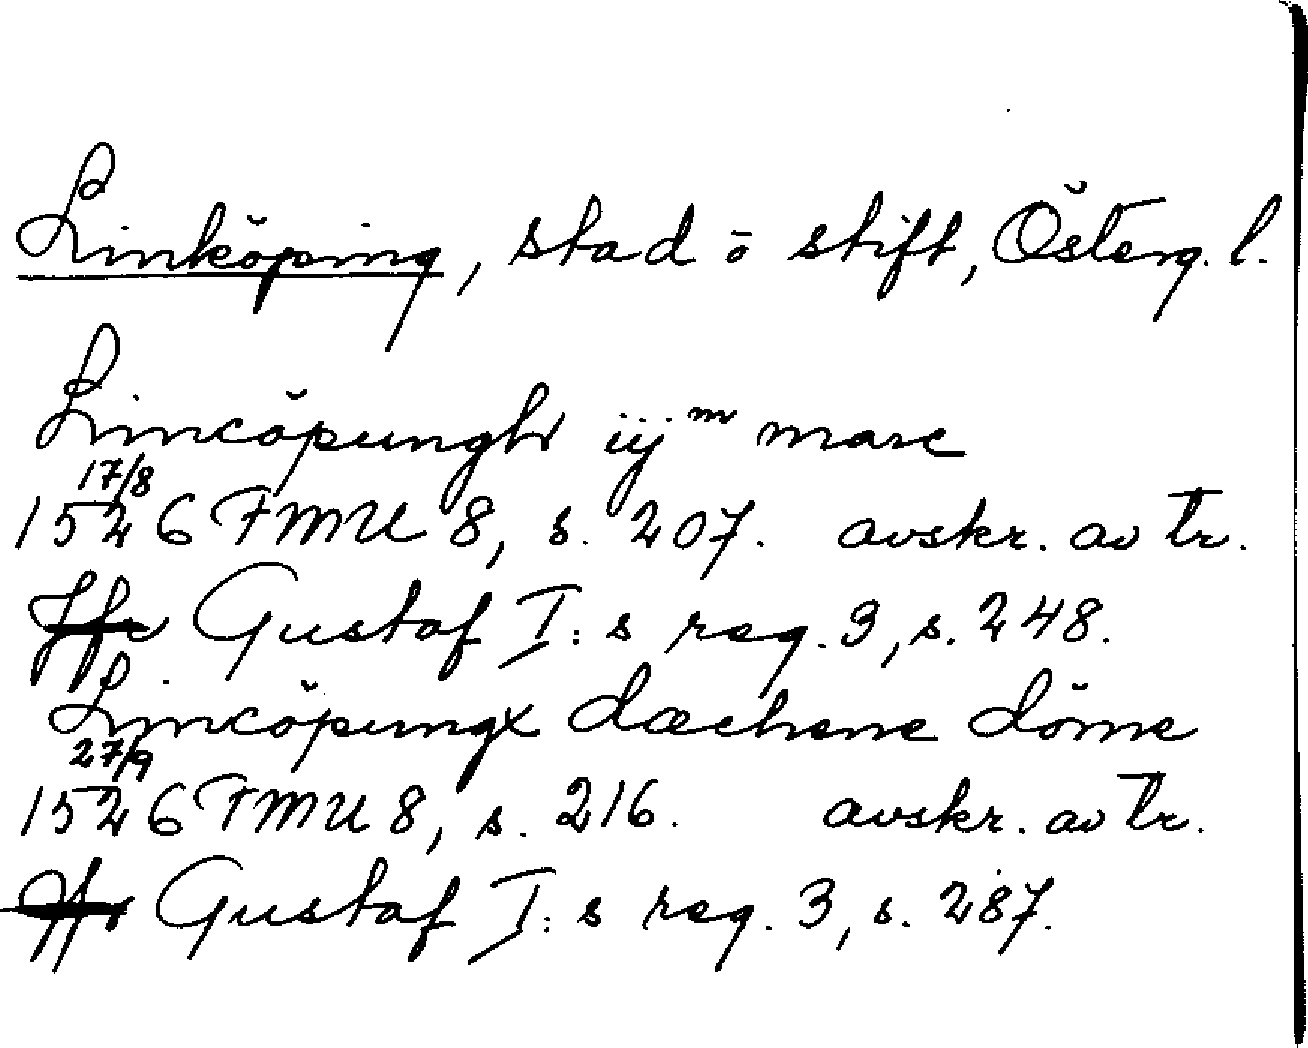 Linköping, stad o stift, Österg. l.
Lincöpungh iij m marc
17/8
1526 FMU 8, s. 207. avskr. av tr.
Jfr Gustaf I:s reg. 3, s. 248.
Lincöpungx dæchene döme
27/9
1526 FMU 8, s. 216. avskr. av tr.
Jfr Gustaf I:s reg. 3, s. 287.